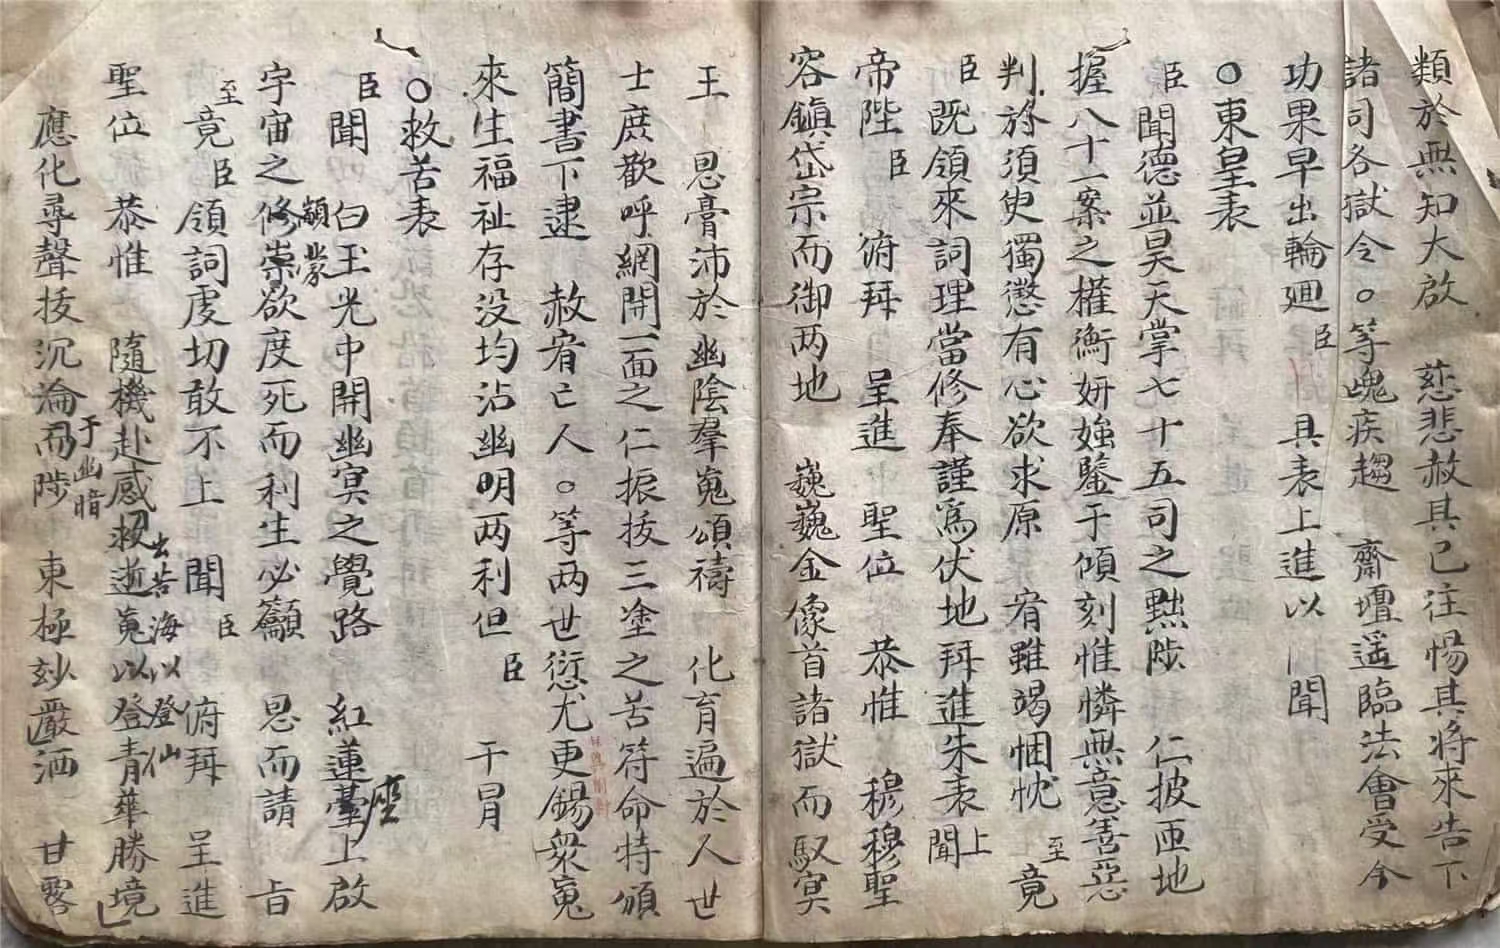 類於無知大啟　慈悲赦其已往惕其將來告下
諸司各獄令○等魂疾趨　齋壇遥臨法會受今
功果早出輪迴臣　具表上進以　聞
○東皇表
臣聞德並昊天掌七十五司之黜陟　仁披匝地
握八十一案之權衡妍媸鑒于傾刻惟憐無意善惡
判於須臾獨懲有心欲求原　宥雖竭悃忱　至竟
臣既領來詞理當修奉謹爲伏地拜進朱表上聞
帝陛臣　俯拜　呈進　聖位　恭惟　穆穆聖
容鎮岱宗而御两地　巍巍金像首諸獄而馭冥
王　恩膏沛於幽陰羣䰟頌禱　化育遍於人世
士庶歡呼網開一面之仁振拔三塗之苦符命特頒
簡書下逮　赦宥亡人○等两世愆尤更錫眾䰟
來生福祉存没均沾幽明两利但臣　干冐
○救苦表
臣聞　白玉光中開幽冥之覺路　紅蓮臺座上啟
宇宙之顓蒙修崇欲度死而利生必籲　恩而請　旨
至竟臣領詞虔切敢不上　聞臣　俯拜　呈進
聖位　恭惟　隨機赴感救逝䰟出苦海以登仙以登青華勝境
應化尋聲拔沉淪于幽暗而陟　東極玅嚴洒　甘露